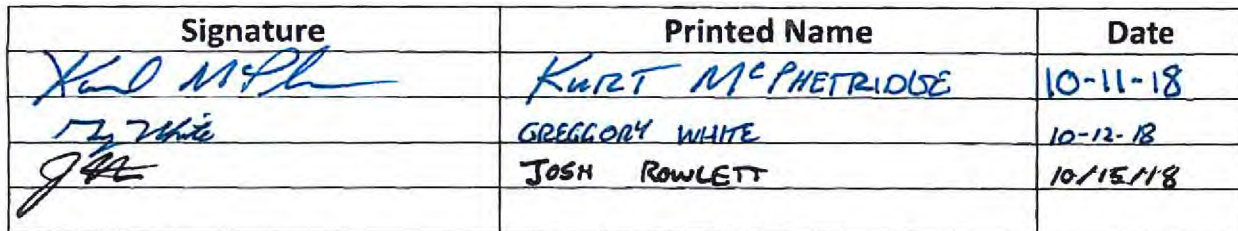 Signature Printed Name Date
KURT McPHETRIDGE 10-11-18
White GREGGORY WHITE 10-12-18
JOSH ROWLETT 10/15/18